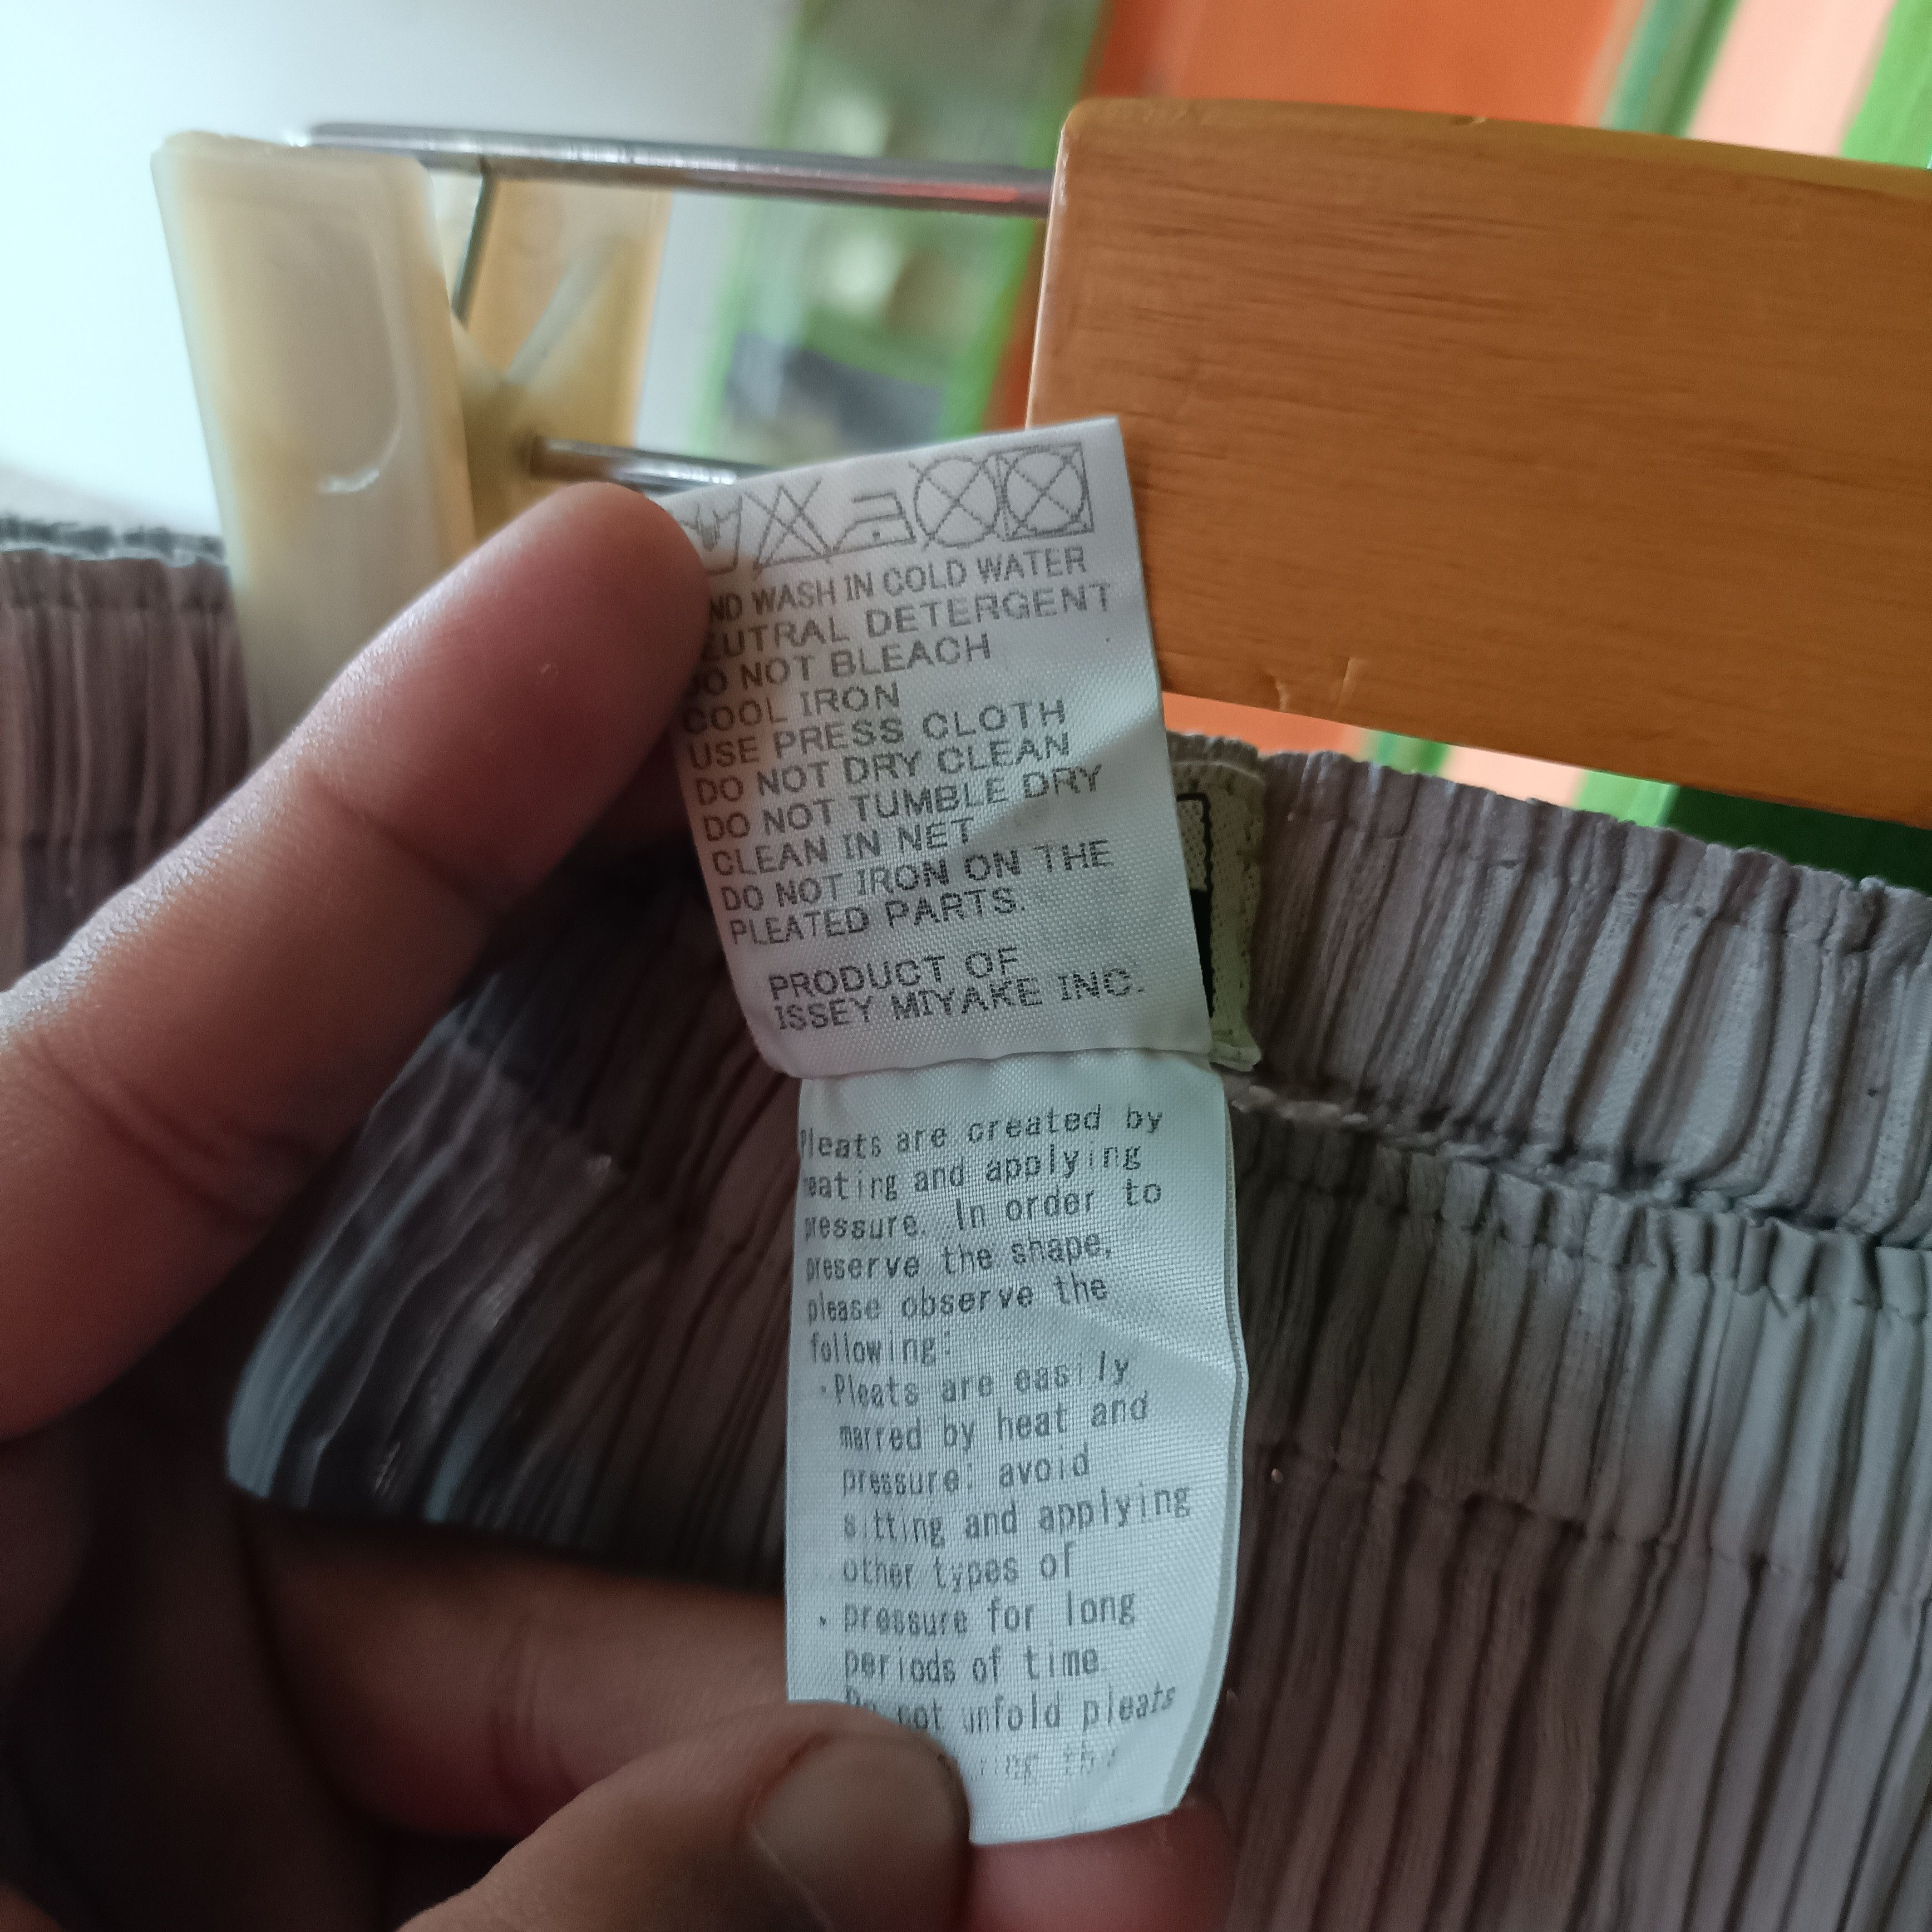 WASH IN COLD WATER
DETERGENT
NOT BLEACH
COOL IRON
USE PRESS CLOTH
DO NOT DRY CLEAN
DO NOT TUMBLE DRY
CLEAN IN NET
DO NOT IRON ON THE
PLEATED PARTS.
PRODUCT OF
ISSEY MIYAKE INC.
Pleats are created by
and applying
pressure. In order to
preserve the shape,
please observe the
following:
·Pleats are easily
marred by heat and
pressure; avoid
sitting and applying
other types of
· pressure for long
periods of time.
not unfold pleats